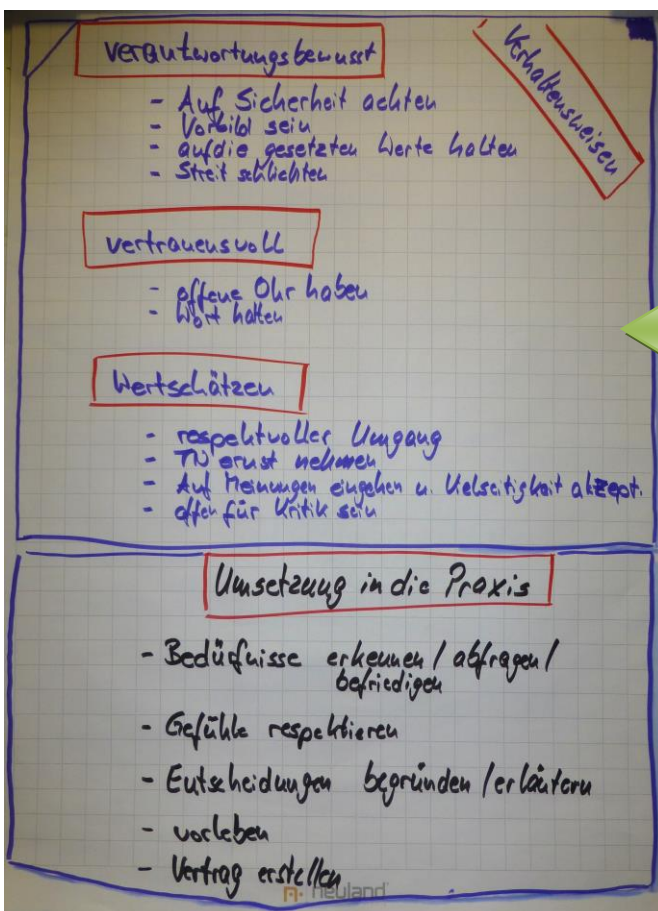 verantwortungsbewusst
Verhaltensweisen
- Auf Sicherheit achten
- Vorbild sein
- auf die gesetzten Werte halten
- Streit schlichten
vertrauensvoll
- offene Ohr haben
- Wort halten
Wertschätzen
- respektvoller Umgang
- TN ernst nehmen
- Auf Meinungen eingehen u. Vielseitigkeit akzept.
- offen für Kritik sein
Umsetzung in die Praxis
- Bedürfnisse erkennen / abfragen /
befriedigen
- Gefühle respektieren
- Entscheidungen begründen / erläutern
- vorleben
- Vertrag erstellen
neuland